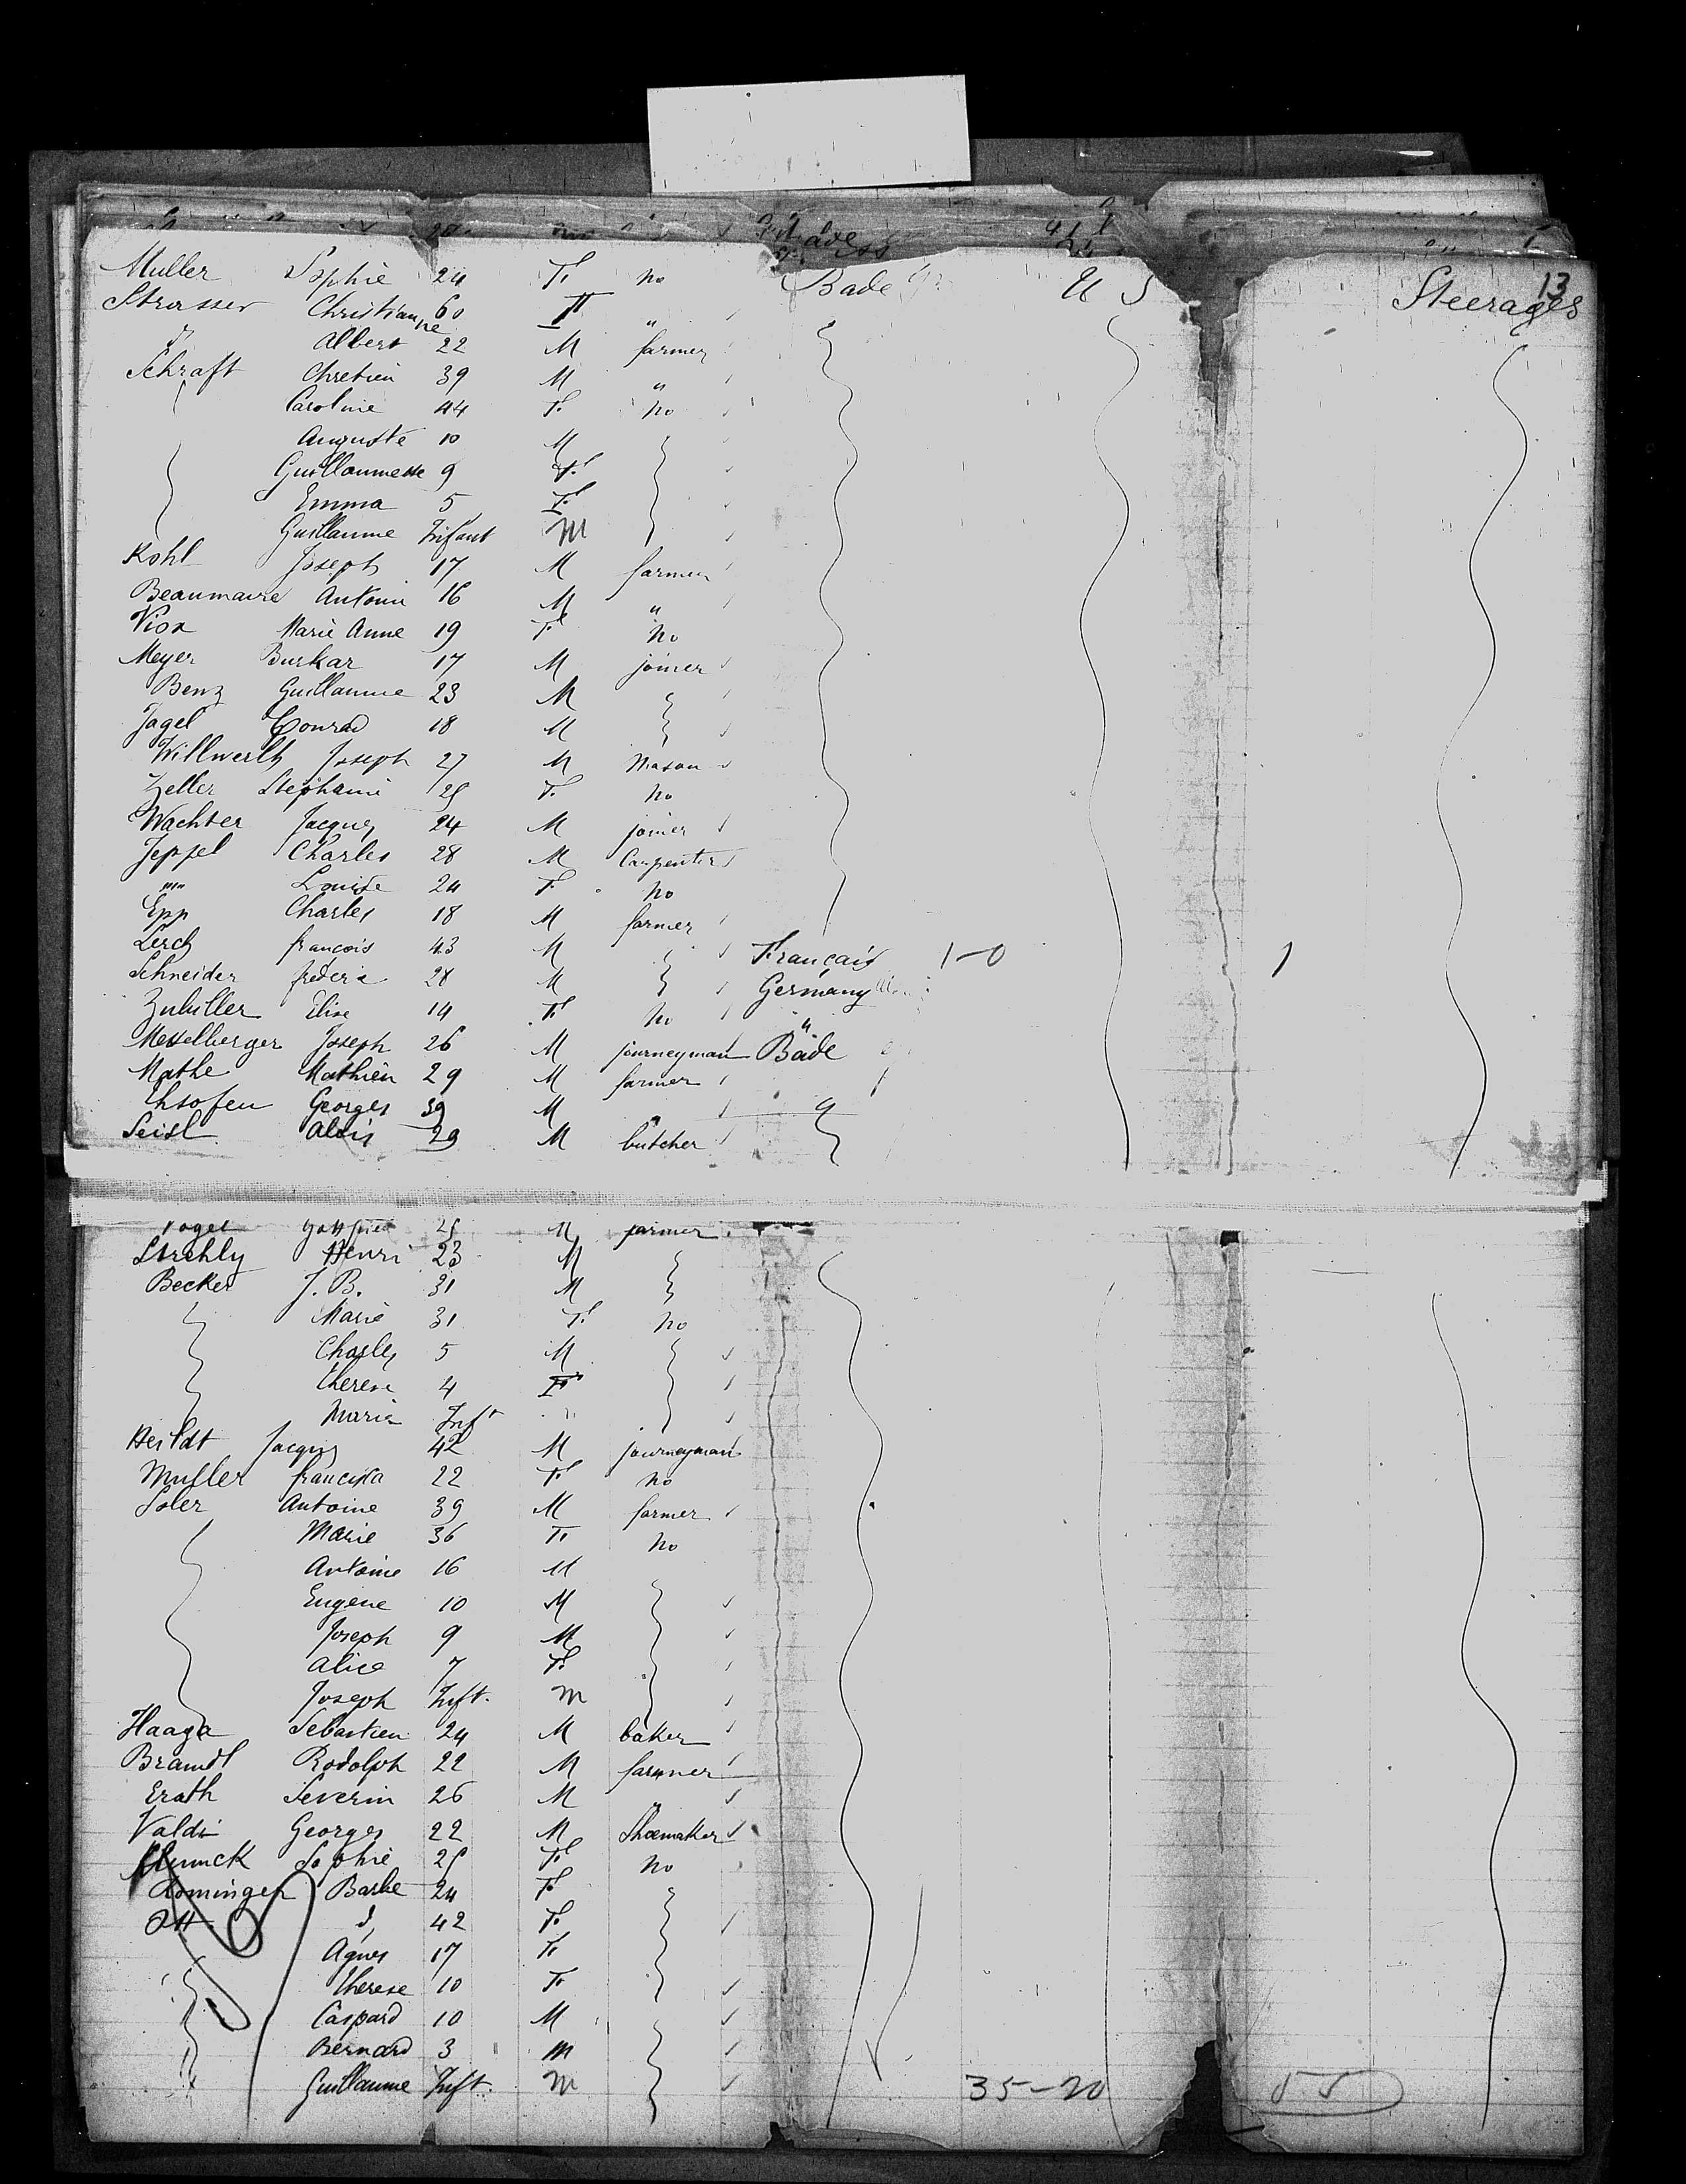 13
Muller Sophie 24 F. no Bade U S Steerages
Strasser Christianne 60 F "
" Albert 22 M farmer
Schraft Chretien 39 M "
Caroline 44 F. no
Auguste 10 M
Guillaumette 9 F.
Emma 5 F.
Guillaume Infant M
Kohl Joseph 17 M farmer
Beaumaire Antoine 16 M "
Viox Marie Anne 19 F. no
Meyer Burkar 17 M joiner
Benz Guillaume 23 M
Jagel Conrad 18 M
Willwerth Joseph 27 M Mason
Zeller Stephanie F. no
Wachter Jacques 24 M joiner
Jeppel Charles 28 M Carpenter
"" Louise 24 F. no
Epp Charles 18 M farmer
Lerch francois 43 M Français 1-0 1
Schneider frederic 28 M Germany
Elise 14 F. no "
Messelberger Joseph 26 M journeyman Bade
Mathe Mathieu 29 M farmer
Georges 39 M "
Seisl Alois 29 M butcher
Gottfried M farmer
Strehly Henri 23 M
Becker J. B. 31 M
Marie 31 F. no
Charles 5 M
therese 4 F.
Maria Inft
Jacques 42 M journeyman
Muller franciska 22 F. no
Soler Antoine 39 M farmer
Marie 36 F. no
Antoine 16 M
Eugene 10 M
Joseph 9 M
Alice 7 F.
Joseph Inft. M
Haaga Sebastien 24 M baker
Brandt Rodolph 22 M farmer
Erath Severin 26 M "
Valdi Georges 22 M Shoemaker
Sophie F. no
Barbe 24 F.
Ott d, 42 F.
Agnes 17 F.
therese 10 F.
Caspard 10 M
Bernard 3 M
Guillaume Inft. M 35-20 55